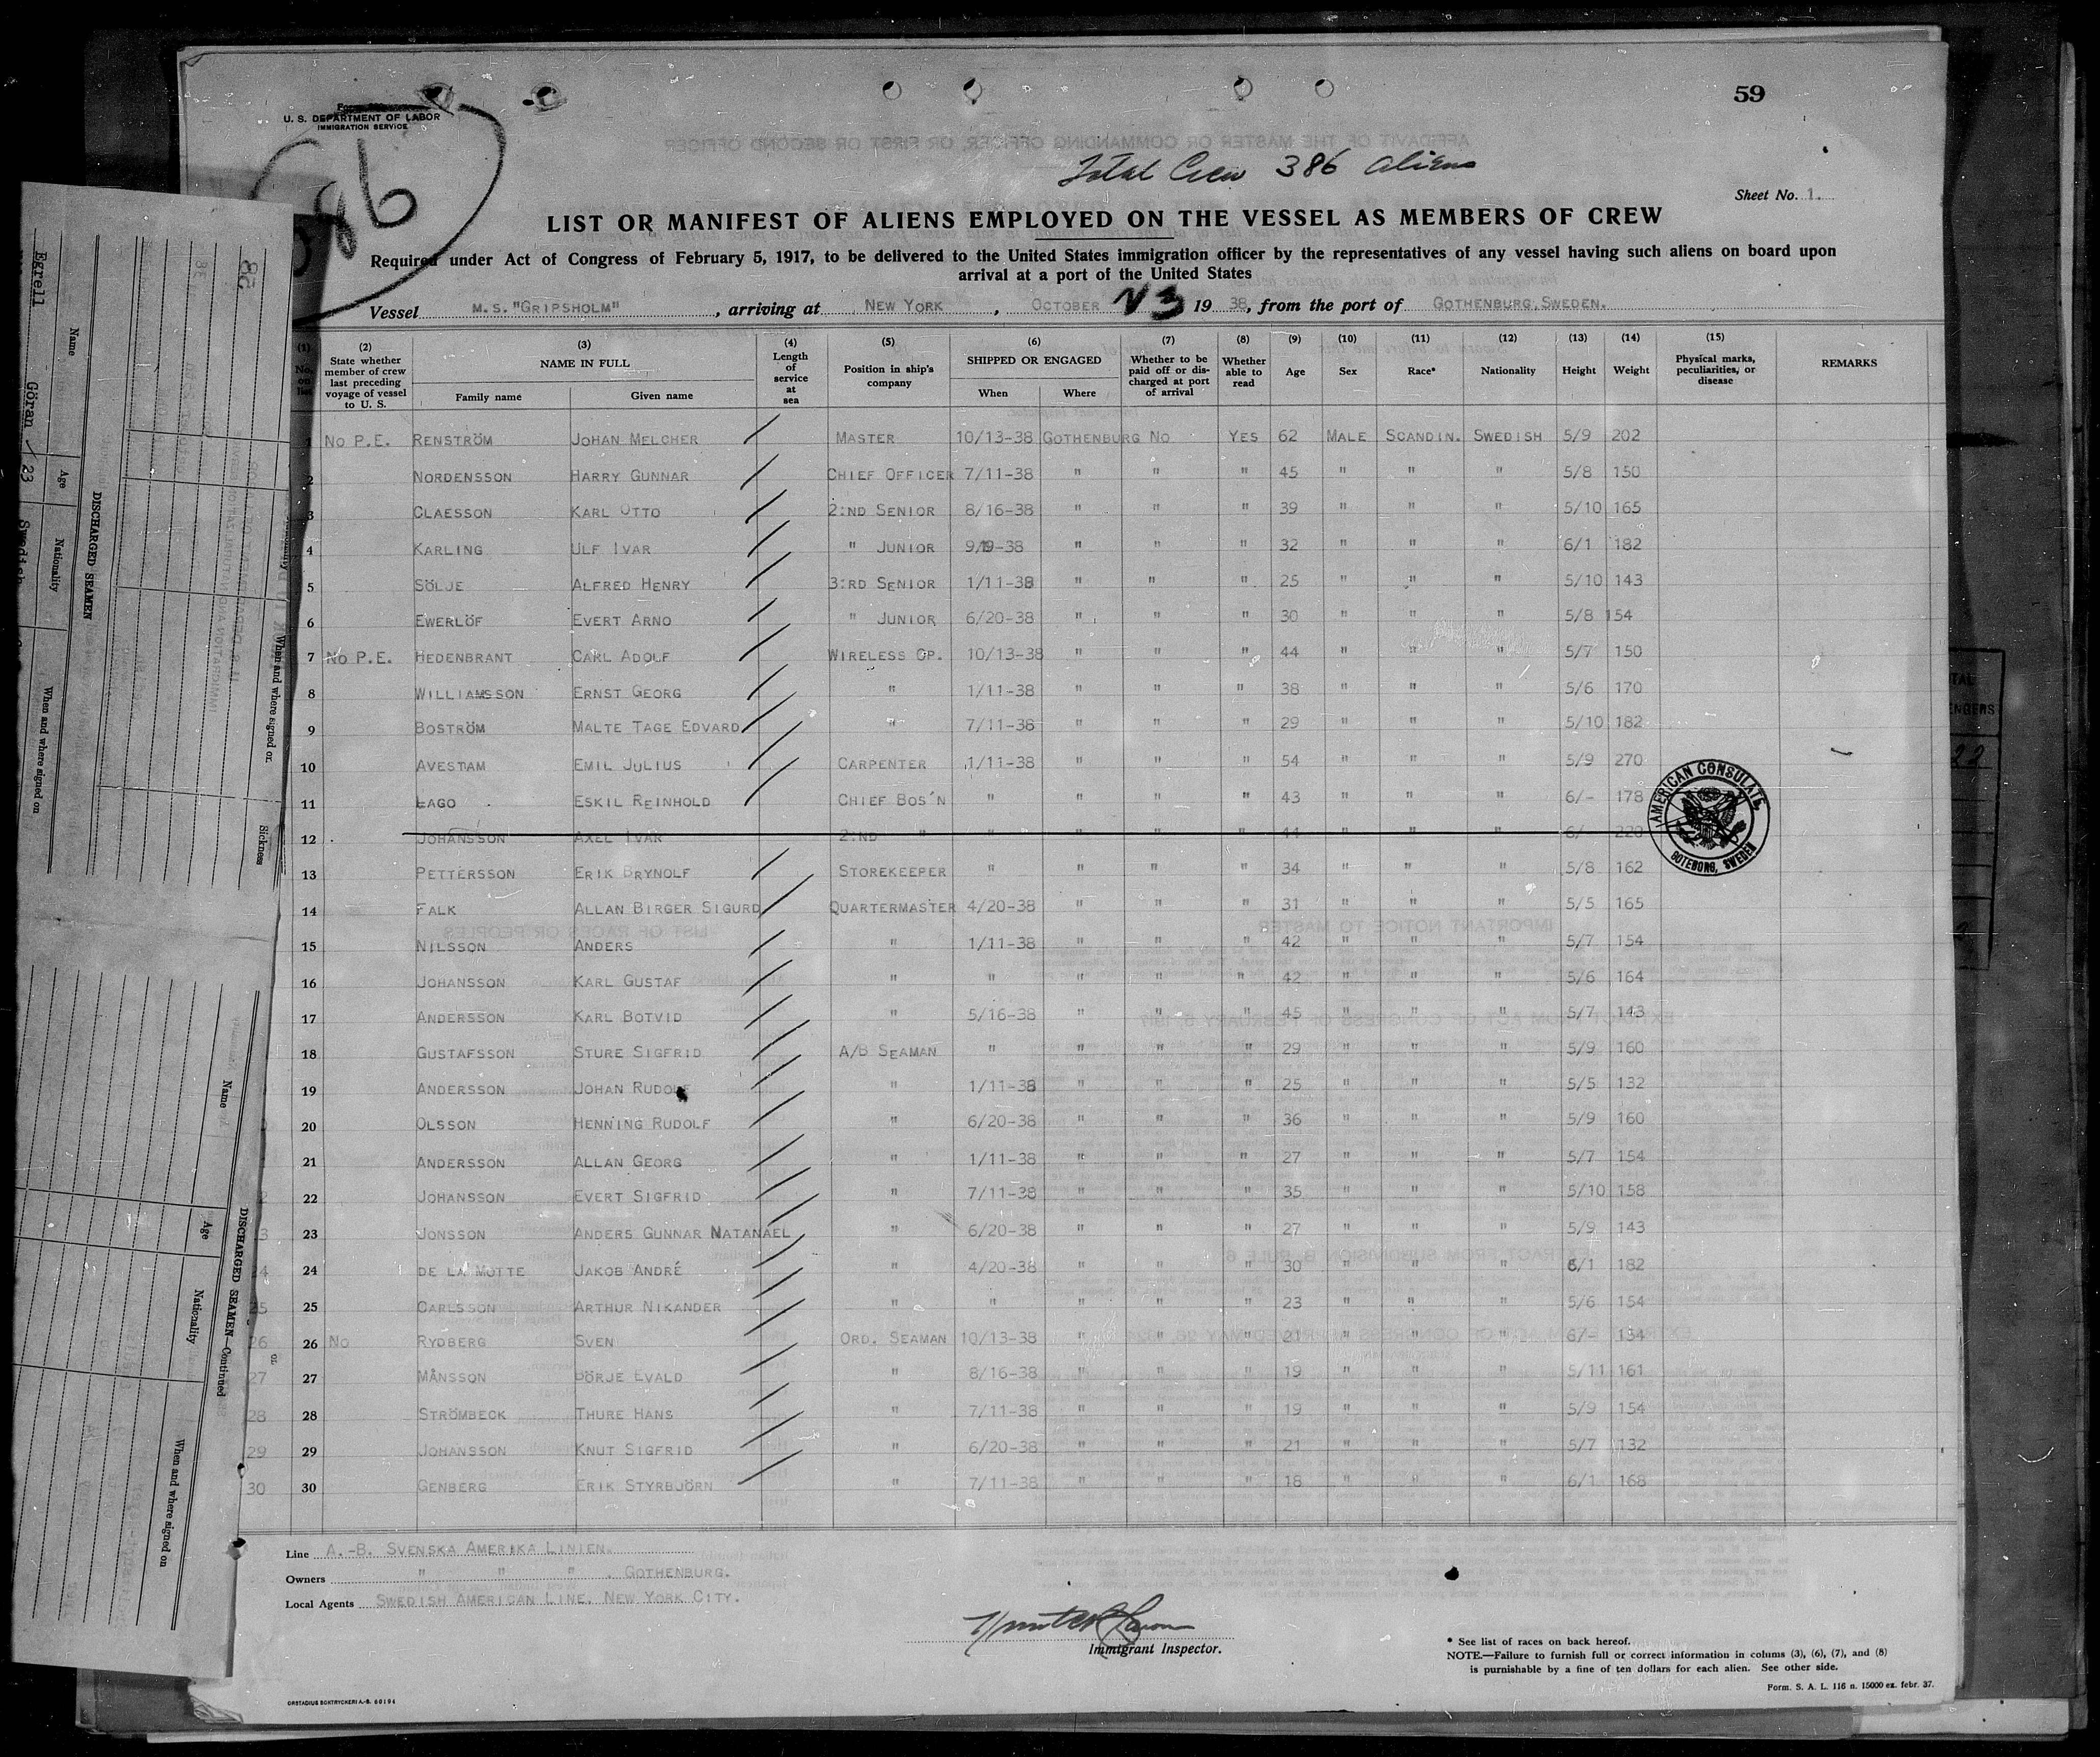 59
Form
U. S. DEPARTMENT OF LABOR
IMMIGRATION SERVICE
86
Total Crew 386 Aliens
Sheet No. 1.
LIST OR MANIFEST OF ALIENS EMPLOYED ON THE VESSEL AS MEMBERS OF CREW
Required under Act of Congress of February 5, 1917, to be delivered to the United States immigration officer by the representatives of any vessel having such aliens on board upon
arrival at a port of the United States
Vessel M.S. "GRIPSHOLM", arriving at NEW YORK, OCTOBER 23 1938, from the port of GOTHENBURG, SWEDEN.
(1) No. on list (2) State whether member of crew last preceding voyage of vessel to U. S. (3) NAME IN FULL Family name Given name (4) Length of service at sea (5) Position in ship's company (6) SHIPPED OR ENGAGED When Where (7) Whether to be paid off or discharged at port of arrival (8) Whether able to read (9) Age (10) Sex (11) Race* (12) Nationality (13) Height (14) Weight (15) Physical marks, peculiarities, or disease REMARKS
1 NO P.E. RENSTRÖM JOHAN MELCHER MASTER 10/13-38 GOTHENBURG NO YES 62 MALE SCANDIN. SWEDISH 5/9 202
2 NORDENSSON HARRY GUNNAR CHIEF OFFICER 7/11-38 " " " 45 " " " 5/8 150
3 CLAESSON KARL OTTO 2:ND SENIOR 8/16-38 " " " 39 " " " 5/10 165
4 KARLING ULF IVAR " JUNIOR 9/19-38 " " " 32 " " " 6/1 182
5 SÖLJE ALFRED HENRY 3:RD SENIOR 1/11-38 " " " 25 " " " 5/10 143
6 EWERLÖF EVERT ARNO " JUNIOR 6/20-38 " " " 30 " " " 5/8 154
7 NO P.E. HEDENBRANT CARL ADOLF WIRELESS OP. 10/13-38 " " " 44 " " " 5/7 150
8 WILLIAMSSON ERNST GEORG " 1/11-38 " " " 38 " " " 5/6 170
9 BOSTRÖM MALTE TAGE EDVARD " 7/11-38 " " " 29 " " " 5/10 182
10 AVESTAM EMIL JULIUS CARPENTER 1/11-38 " " " 54 " " " 5/9 270
11 LAGO ESKIL REINHOLD CHIEF BOS'N " " " " 43 " " " 6/- 178
12 JOHANSSON AXEL IVAR 2:ND " " " " " 44 " " " 6/- 220
13 PETTERSSON ERIK BRYNOLF STOREKEEPER " " " " 34 " " " 5/8 162
14 FALK ALLAN BIRGER SIGURD QUARTERMASTER 4/20-38 " " " 31 " " " 5/5 165
15 NILSSON ANDERS " 1/11-38 " " " 42 " " " 5/7 154
16 JOHANSSON KARL GUSTAF " " " " " 42 " " " 5/6 164
17 ANDERSSON KARL BOTVID " 5/16-38 " " " 45 " " " 5/7 143
18 GUSTAFSSON STURE SIGFRID A/B SEAMAN " " " " 29 " " " 5/9 160
19 ANDERSSON JOHAN RUDOLF " 1/11-38 " " " 25 " " " 5/5 132
20 OLSSON HENNING RUDOLF " 6/20-38 " " " 36 " " " 5/9 160
21 ANDERSSON ALLAN GEORG " 1/11-38 " " " 27 " " " 5/7 154
22 JOHANSSON EVERT SIGFRID " 7/11-38 " " " 35 " " " 5/10 158
23 JONSSON ANDERS GUNNAR NATANAEL " 6/20-38 " " " 27 " " " 5/9 143
24 DE LA MOTTE JAKOB ANDRÉ " 4/20-38 " " " 30 " " " 6/1 182
25 CARLSSON ARTHUR NIKANDER " " " " " 23 " " " 5/6 154
26 NO RYDBERG SVEN ORD. SEAMAN 10/13-38 " " " 21 " " " 6/- 134
27 MÅNSSON BÖRJE EVALD " 8/16-38 " " " 19 " " " 5/11 161
28 STRÖMBECK THURE HANS " 7/11-38 " " " 19 " " " 5/9 154
29 JOHANSSON KNUT SIGFRID " 6/20-38 " " " 21 " " " 5/7 132
30 GENBERG ERIK STYRBJÖRN " 7/11-38 " " " 18 " " " 6/1 168
AMERICAN CONSULATE
GOTEBORG, SWEDEN
Line A.-B. SVENSKA AMERIKA LINIEN.
Owners " " " , GOTHENBURG.
Local Agents SWEDISH AMERICAN LINE, NEW YORK CITY.
Immigrant Inspector.
* See list of races on back hereof.
NOTE.—Failure to furnish full or correct information in colums (3), (6), (7), and (8)
is purnishable by a fine of ten dollars for each alien. See other side.
Form. S. A. L. 116 n. 15000 ex. febr. 37.
ORSTADIUS BOKTRYCKERI A.-B. 60194
DISCHARGED SEAMEN
Name Age Nationality When and where signed on
Egrell Göran 23 Swedish
When and where signed on Sickness
DISCHARGED SEAMEN—Continued
Name Age Nationality When and where signed on